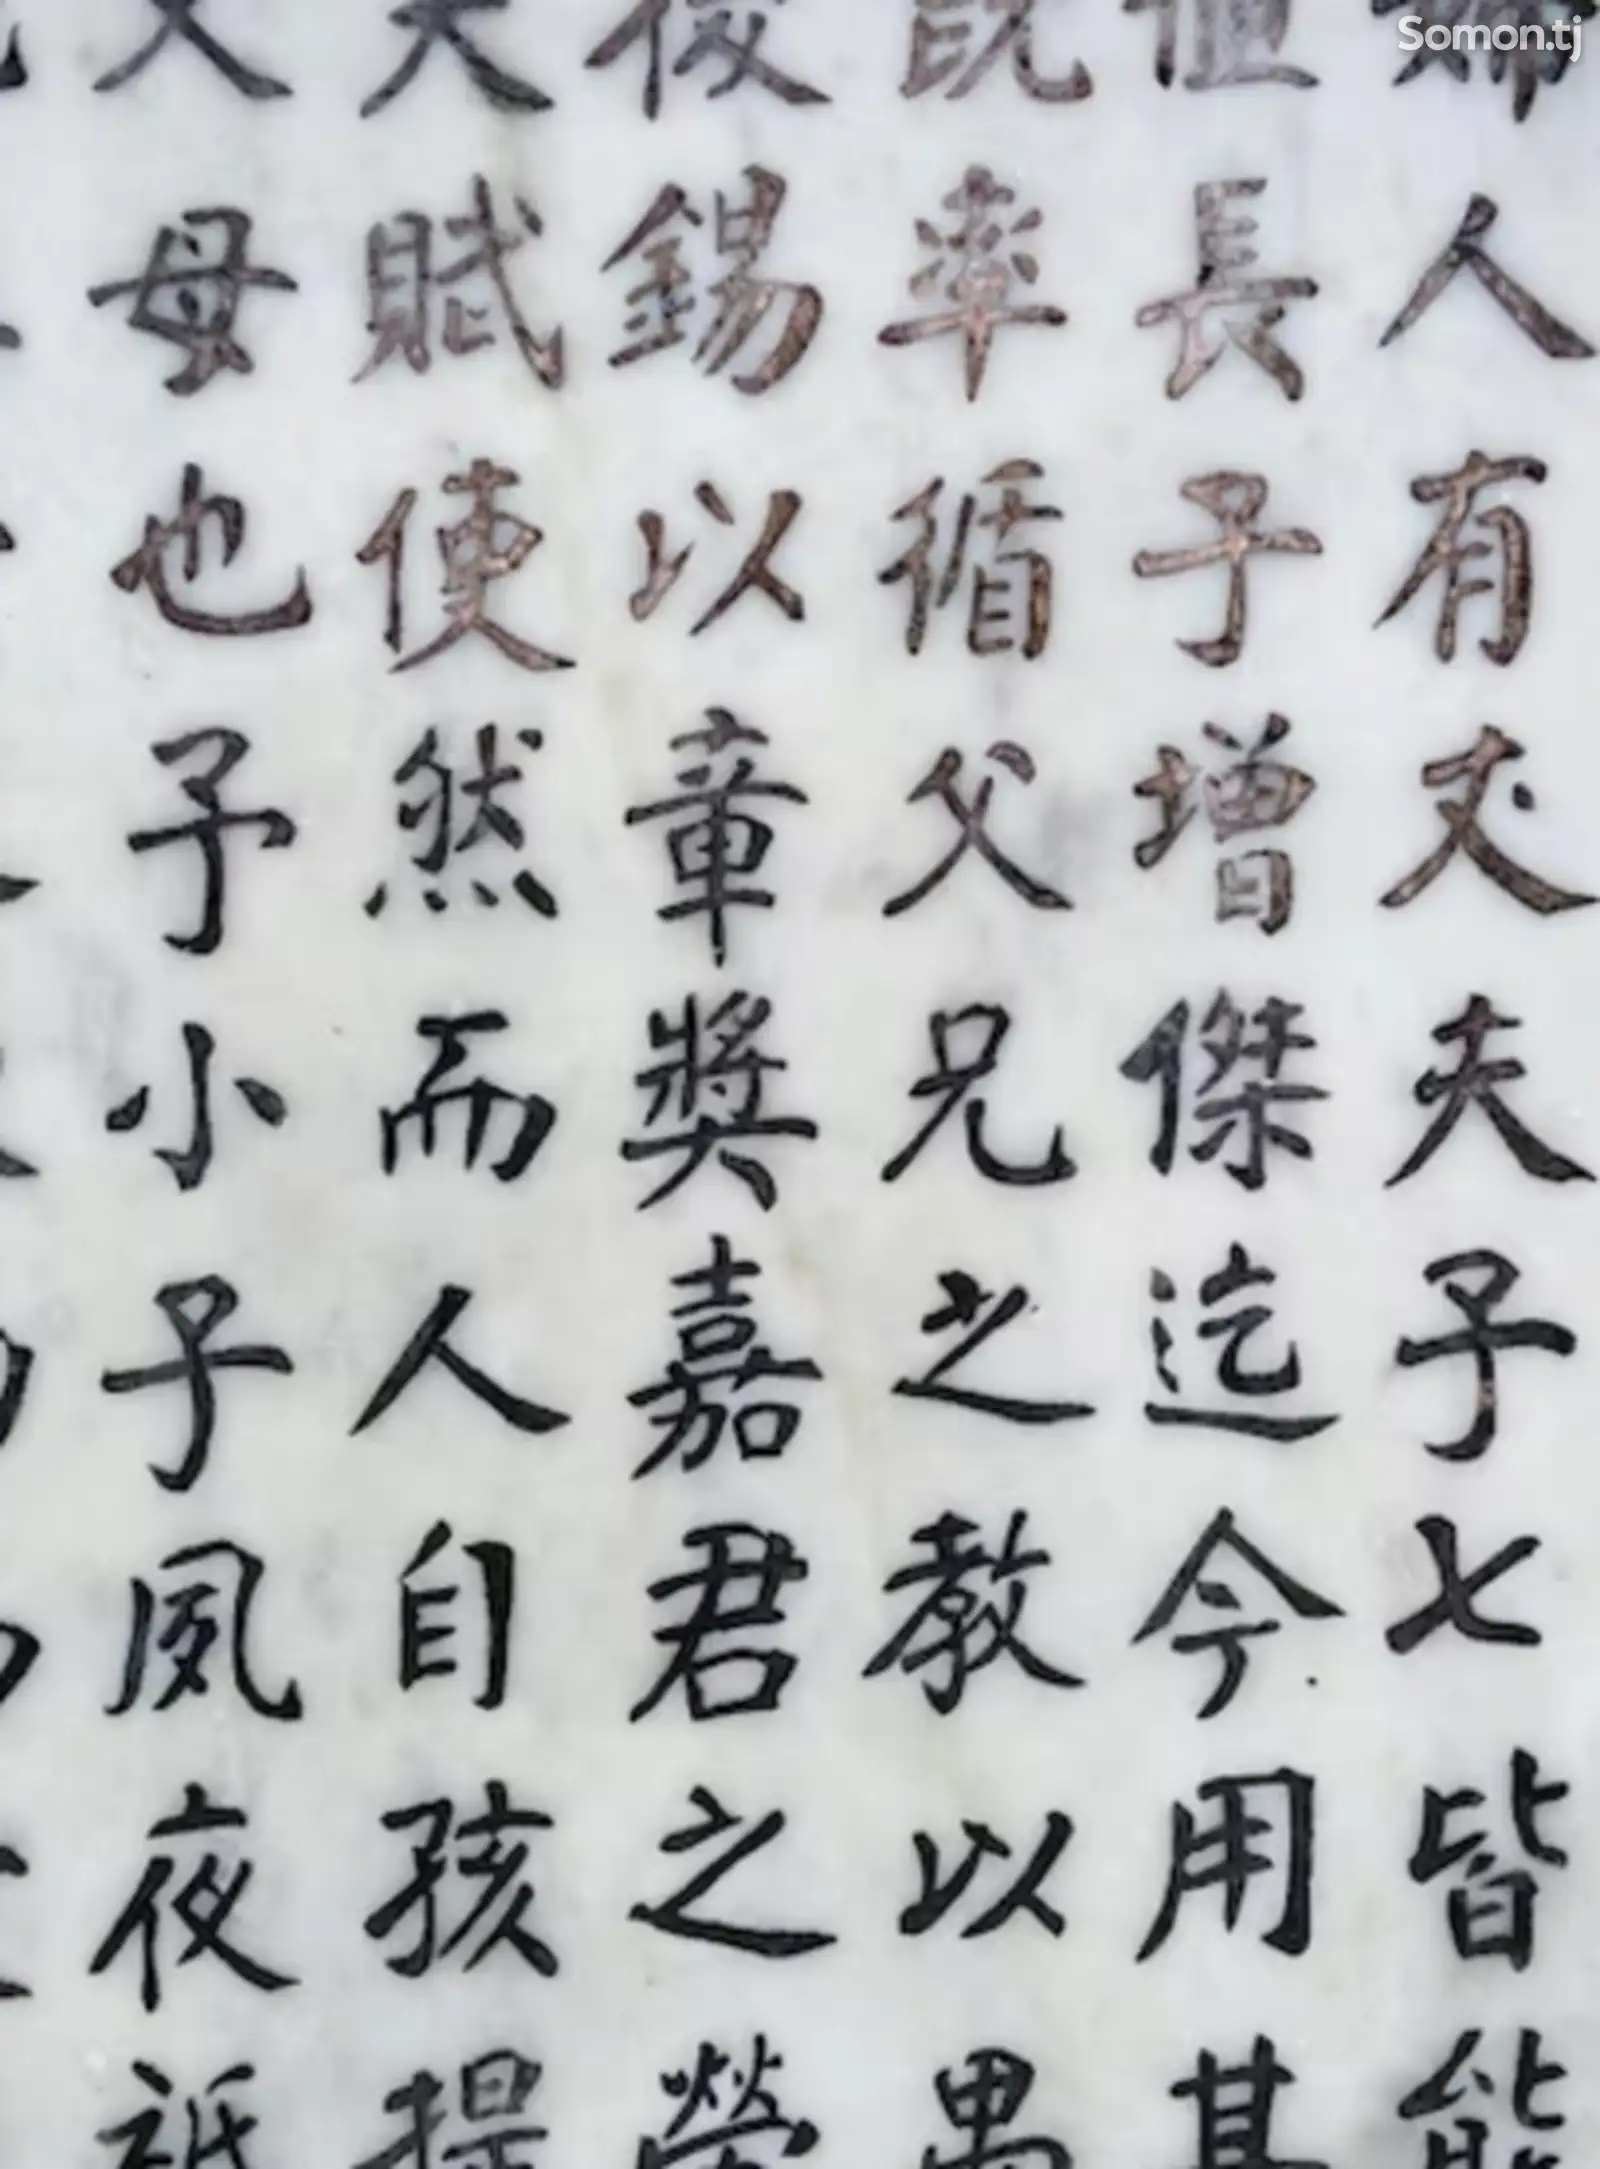 人有丈夫子七皆能
長子增傑迄今用其
既率循父兄之教以愚
後錫以章獎嘉君之榮
天賦使然而人自孩提
父母也予小子夙夜祗
Somon.tj